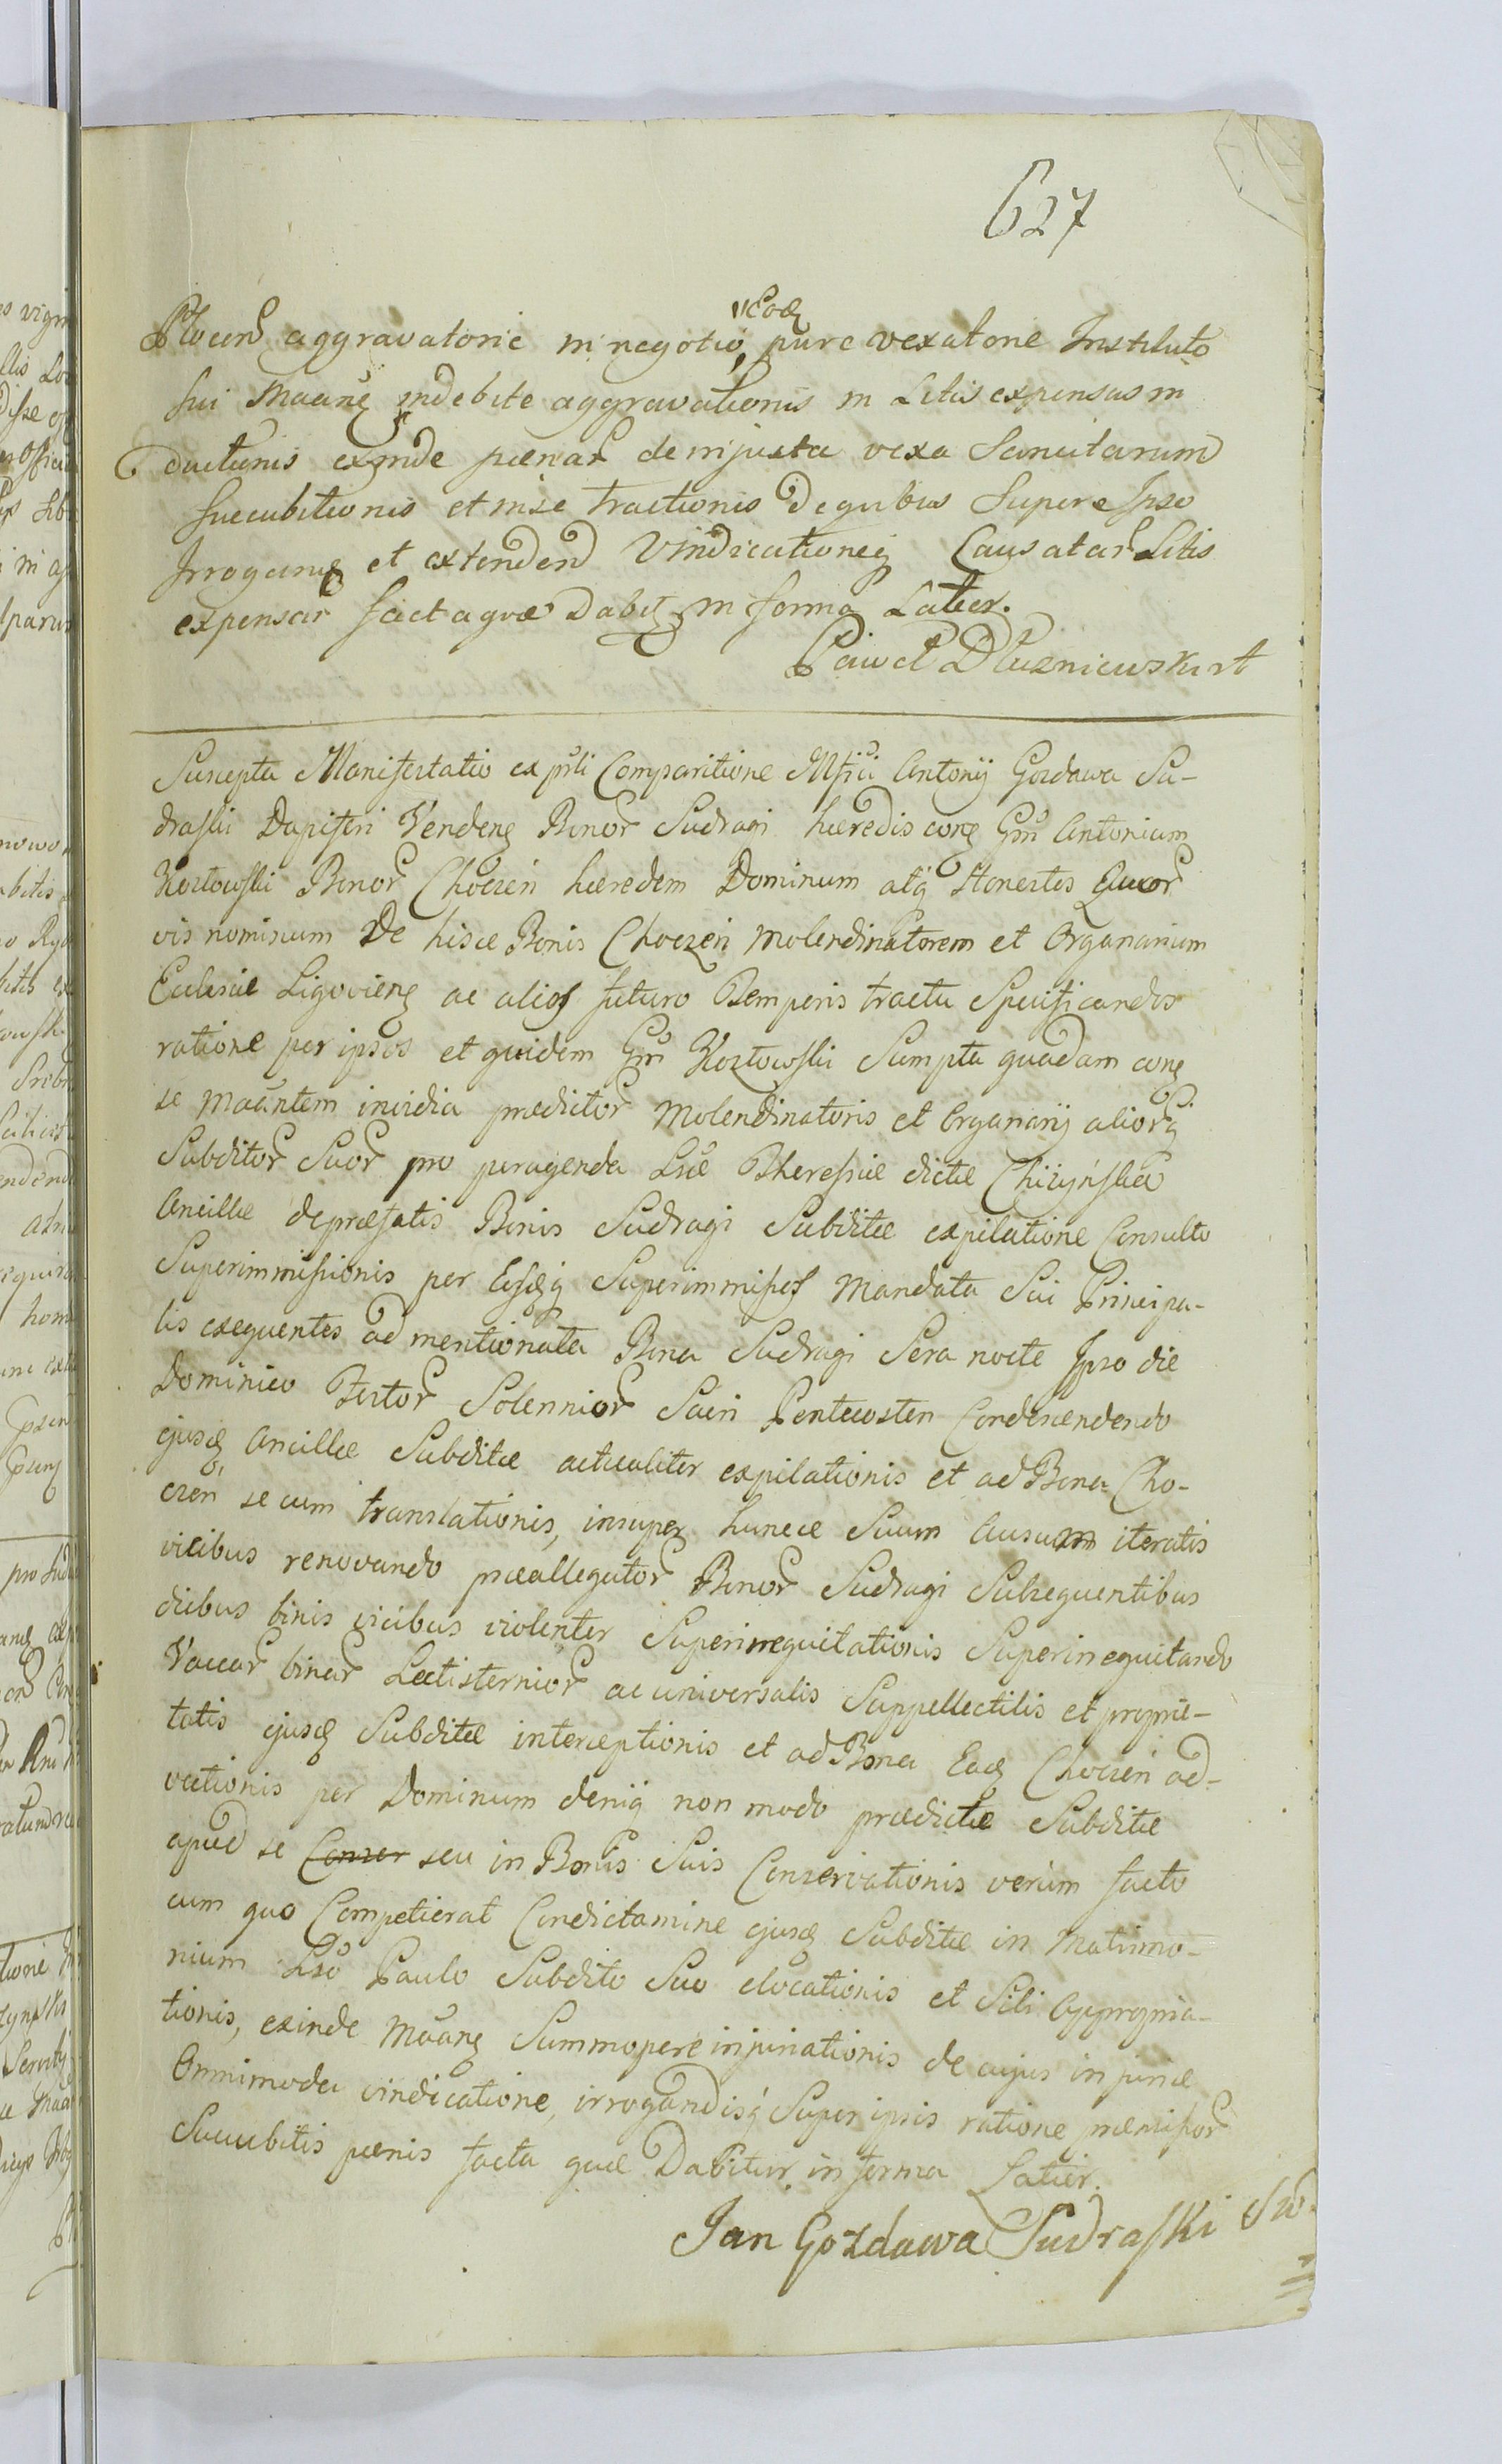 627
Eod
Plocen aggravatorie in negotio, pure vexatorie Instituto
sui Maane indebite aggravationis in Litis expensas in
ductionis exinde paenar de injusta vexa Sancitarum
succubitionis et in se tractionis De quibus Super Ipso
Irrogans et extendend Vindicationeq Causatar Litis
expensar facta quae Dabit in forma Latior.
Paweł Dłużniewski rt
Suscepta Manifestatio ex psti Comparitione Mfici Antonij Gozdawa Su-
draski Dapiferi Vendens Bonor Sudragi haeredis cone Gm Antonium
Kozłowski Bonor Choczeń haeredem Dominum atq Honestos Quor
vis nominum De hisce Bonis Choczeń Molendinatorem et Organarium
Eclesiae Ligoviens ac alios futuro Temporis tractu Specificandos
ratione per ipsos et quidem Gm Kozłowski Sumpta quadam cone
se Maantem invidia praedictor Molendinatoris et Organarij aliorq
Subditor Suor pro peragenda Lsae Theressiae dictae Chiżyńska
Ancillae de praefatis Bonis Sudragi Subditae expilatione Consulto
Superimmissionis per Eosdq Superimmissos Mandata Sui Principa-
lis exequentes ad mentionata Bona Sudragi Sera nocte Ipso die
Dominico Festor Solennior Sacri Pentecosten Condescendendo
ejusd Ancillae Subditae actualiter expilationis et ad Bona Cho-
czeń secum translationis, insuper huncce Suum Ausum iteratis
vicibus renovando praeallegator Bonor Sudragi Subsequentibus
diebus binis vicibus violenter Superinequitationis Superinequitando
Vaccar binar Lectisternior ac universalis Suppellectilis et proprie-
tatis ejusd Subditae interceptionis et ad Bona Ead Choczeń ad-
vectionis per Dominum deniq non modo praedictae Subditae
apud se Conser seu in Bonis Suis Conservationis verum facto
cum quo Competierat Condictamine ejusd Subditae in Matrimo-
nium Lso Paulo Subdito Suo elocationis et Sibi Appropria-
tionis, exinde Maane Summopere injuriationis de cujus injuriae
Omnimoda vindicatione, irrogandisq Super ipsis ratione praemissor
Succubitis paenis facta quae Dabitur in forma Latior.
Jan Gozdawa Sudraski